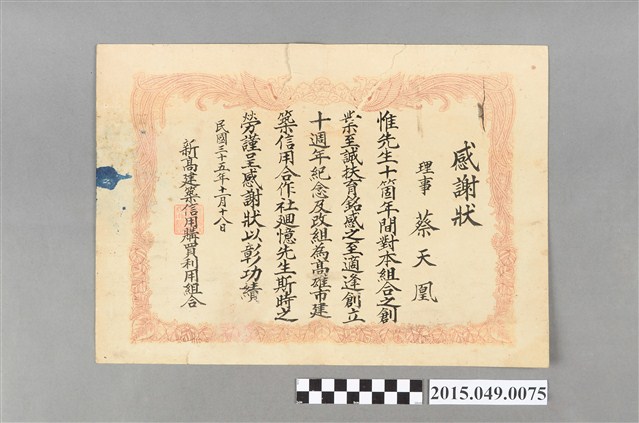 感謝狀
理事 蔡天凰
惟先生十箇年間對本組合之創
業至誠扶育銘感之至適逢創立
十週年紀念及改組為高雄市建
築信用合作社迴憶先生斯時之
勞謹呈感謝狀以彰功績
民國三十五年十一月十八日
新高建築信用購買利用組合
2015.049.0075